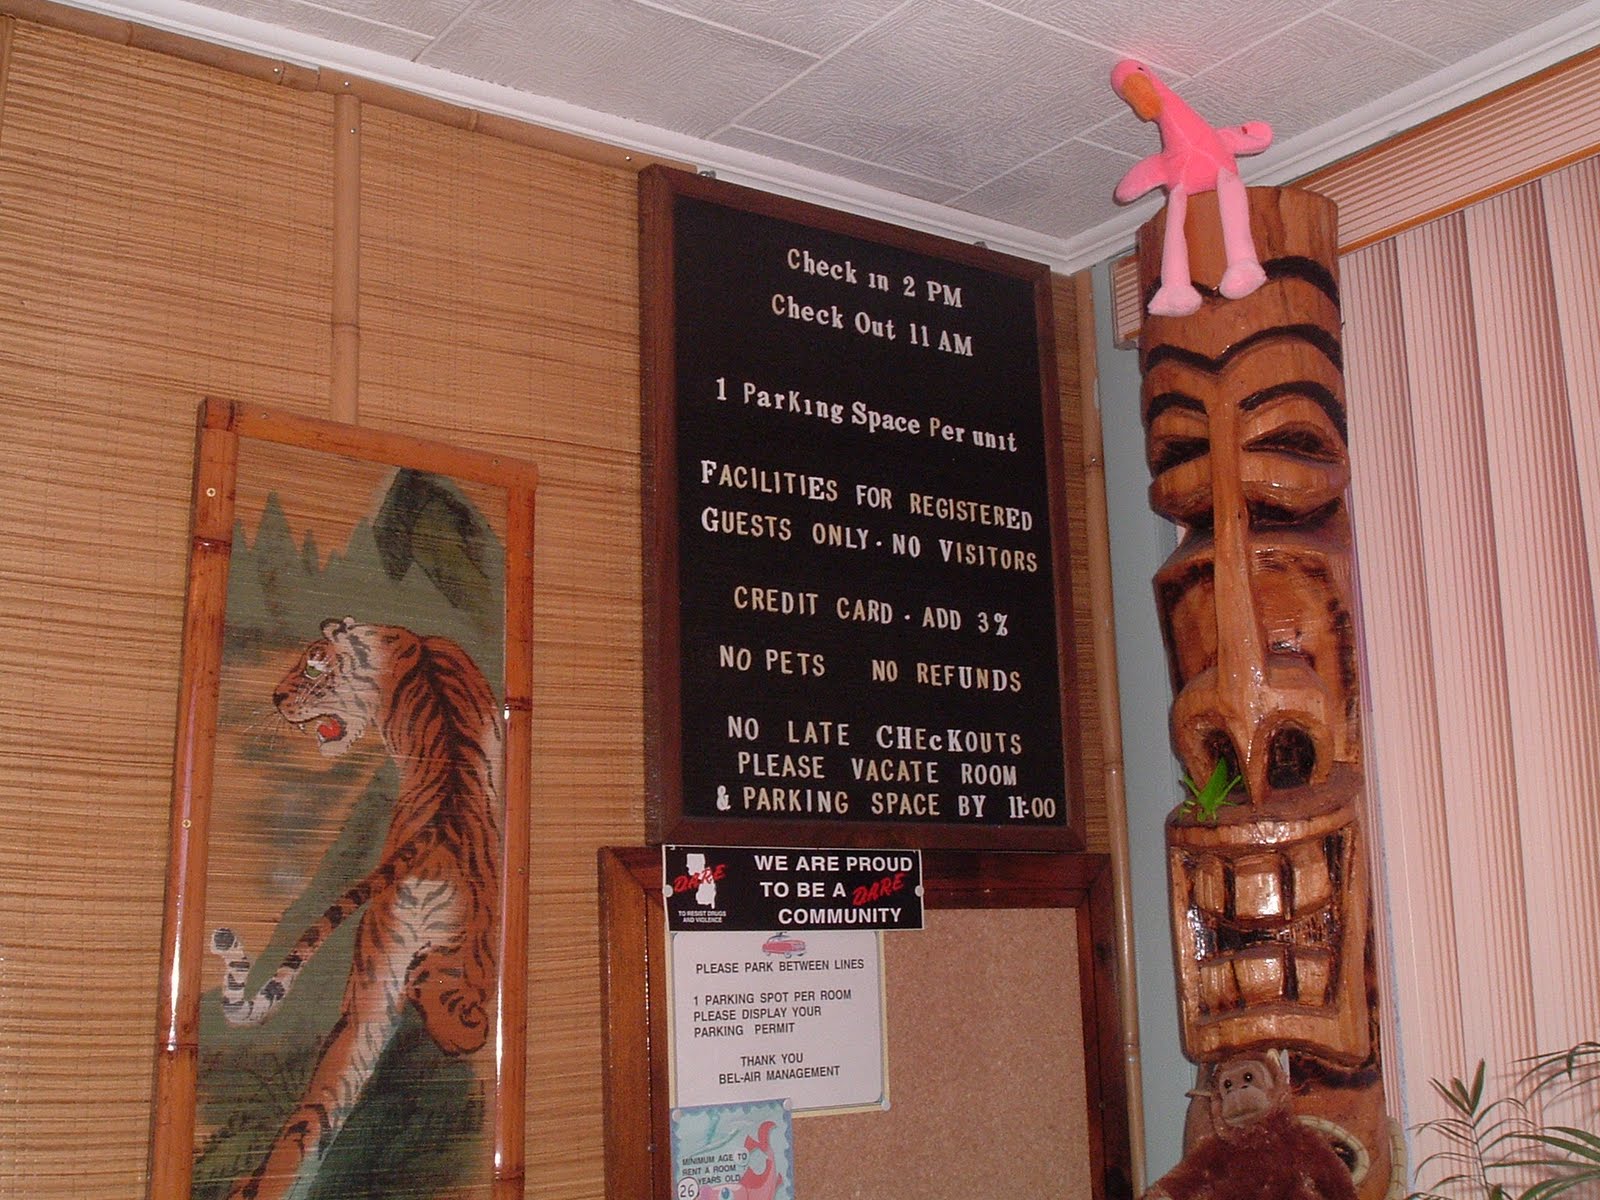 Check in 2 PM
Check Out 11 AM
1 ParKing Space Per unit
FACILITIES FOR REGISTERED
GUESTS ONLY · NO VISITORS
CREDIT CARD · ADD 3%
NO PETS NO REFUNDS
NO LATE CHEcKOUTS
PLEASE VACATE ROOM
& PARKING SPACE BY 11:00
DARE
TO RESIST DRUGS
AND VIOLENCE
WE ARE PROUD
TO BE A DARE
COMMUNITY
PLEASE PARK BETWEEN LINES
1 PARKING SPOT PER ROOM
PLEASE DISPLAY YOUR
PARKING PERMIT
THANK YOU
BEL-AIR MANAGEMENT
MINIMUM AGE TO
RENT A ROOM
26 YEARS OLD